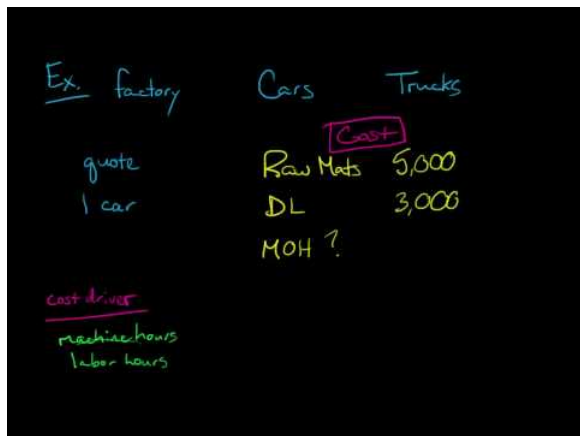 Ex. factory Cars Trucks
Cost
quote Raw Mats 5,000
1 car DL 3,000
MOH ?
cost driver
machine hours
labor hours